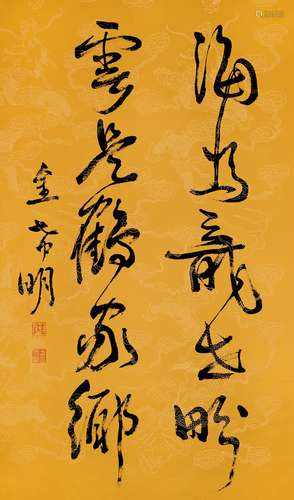 海為龍世畍
雲是鶴家鄉
金希明